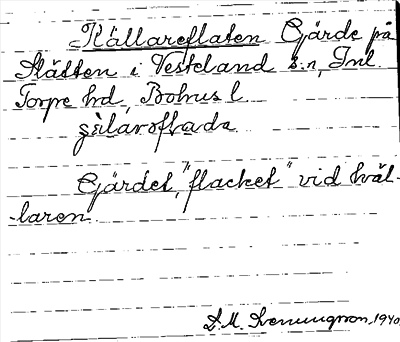 Källareflaten Gärde på
Slätten i Vesteland s:n, Inl.
Torpe hd, Bohus l.
Gärdet, "flacket" vid käl-
laren.
S. M. Svenungsson, 1940.